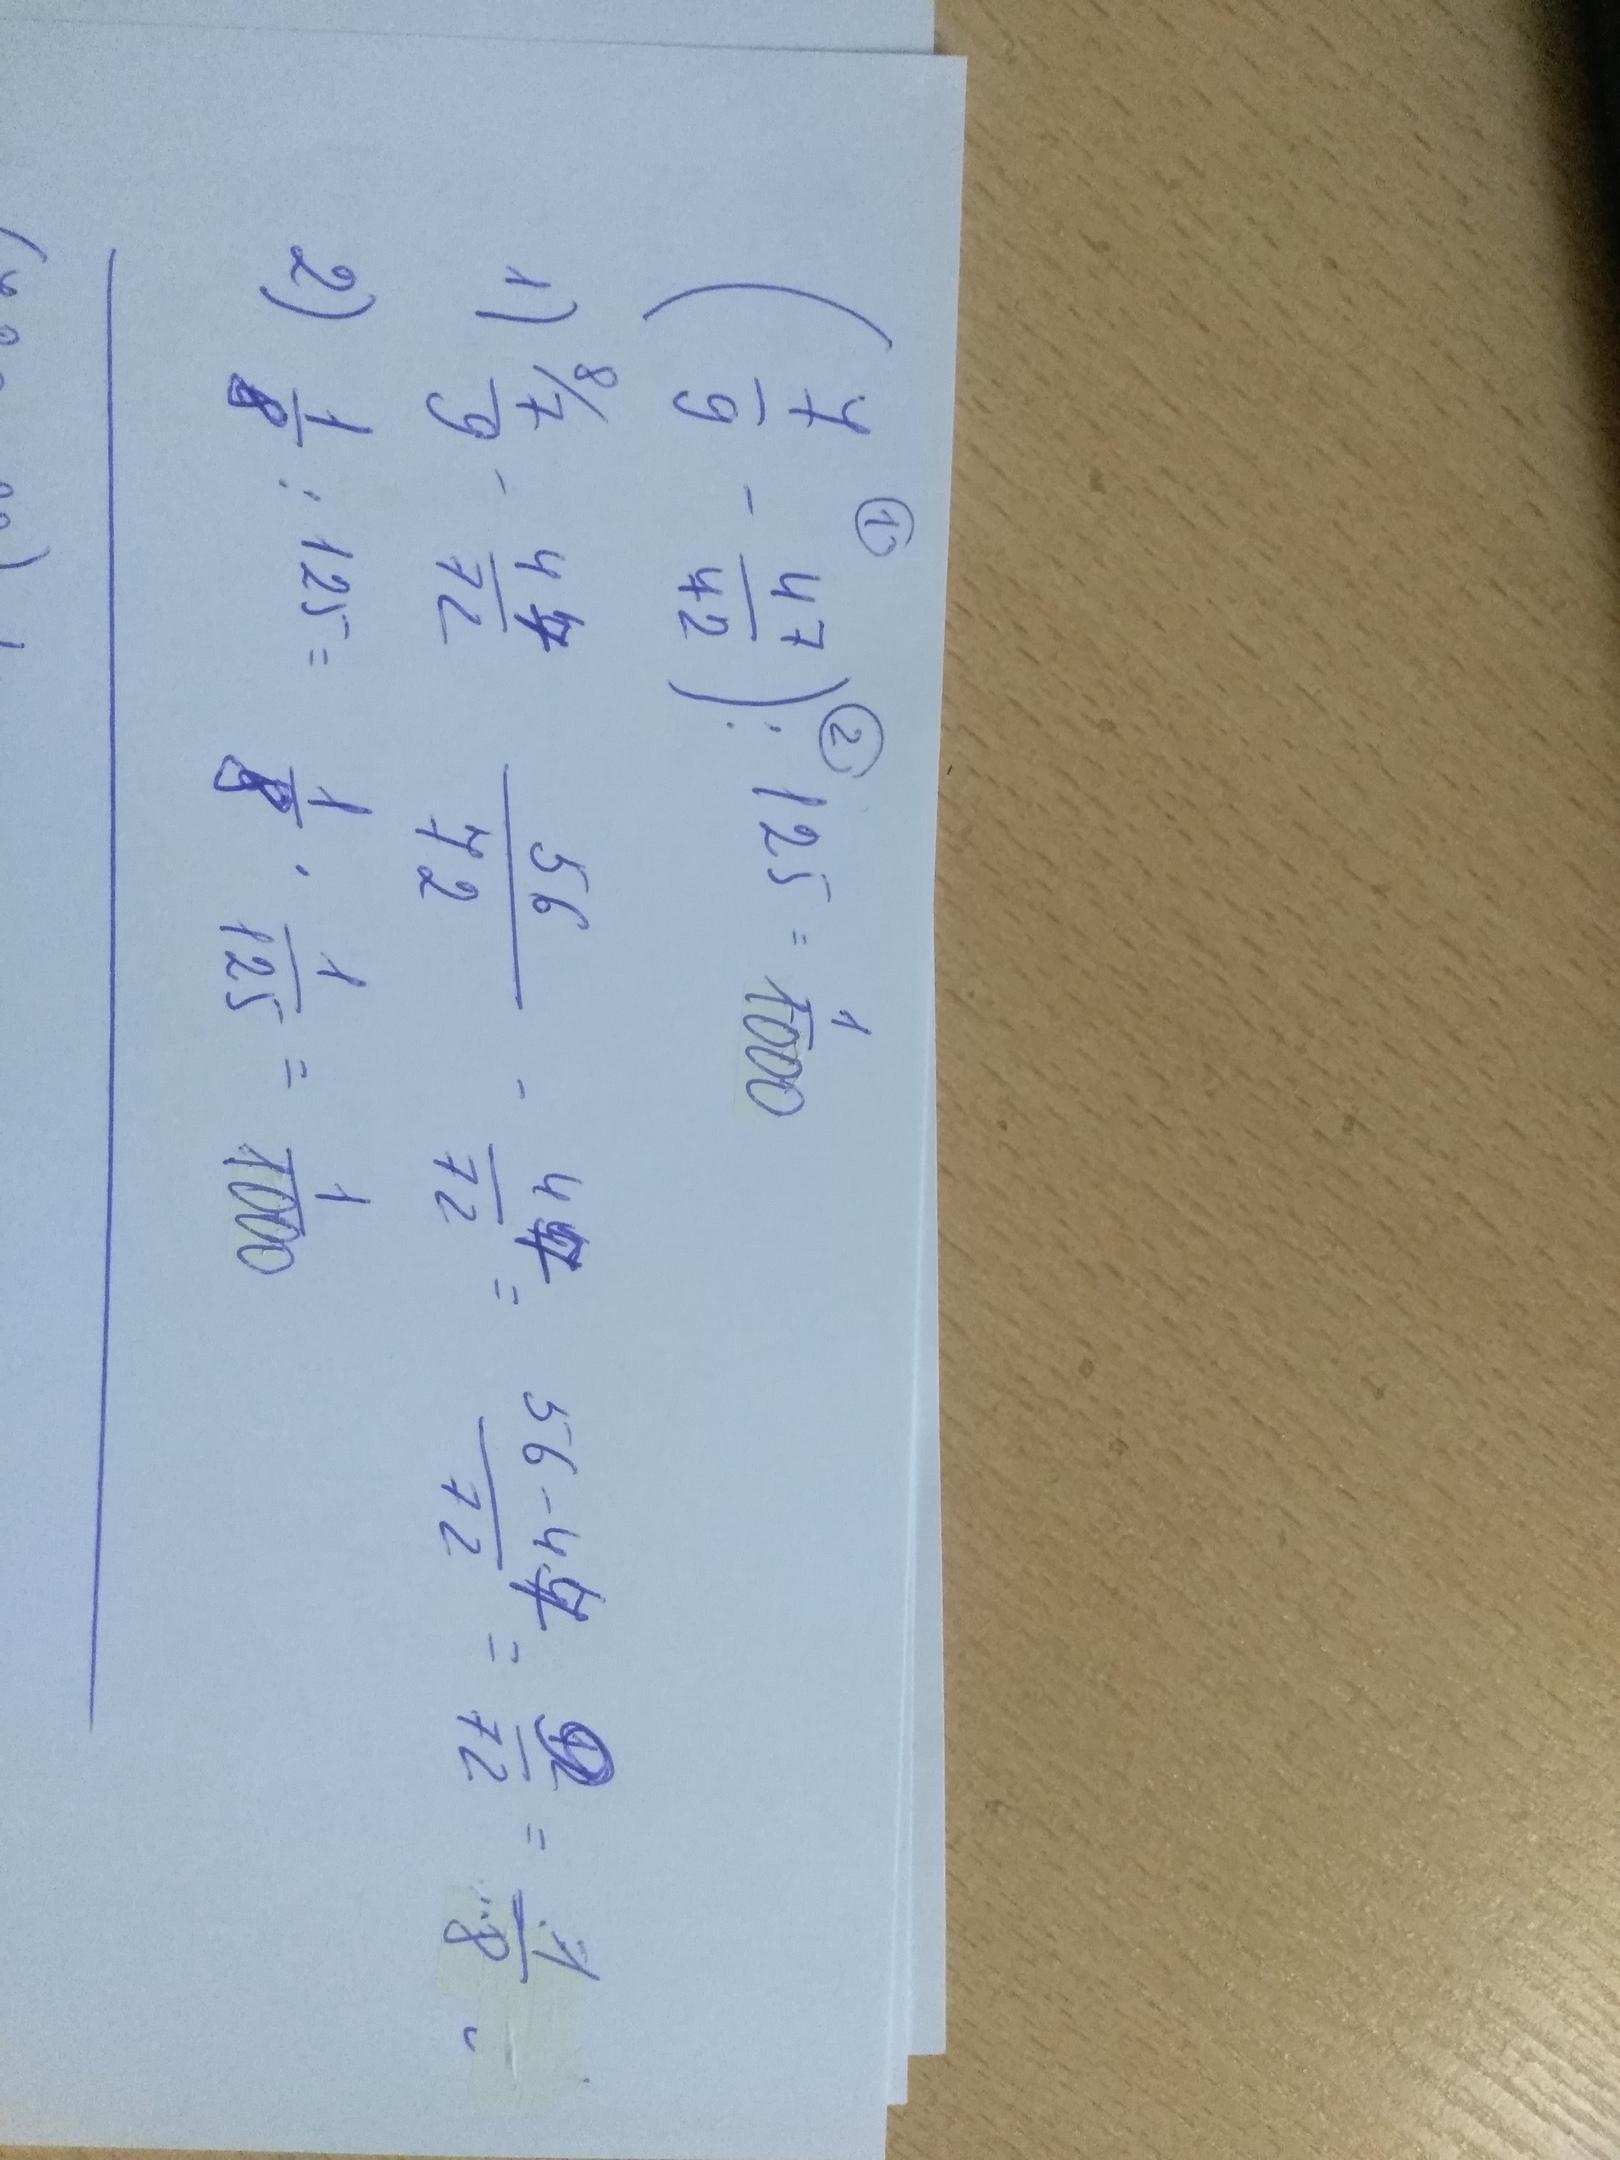 ① ②
(7/9 - 47/42) : 125 = 1/1000
1) 8/ 7/9 - 47/72 56/72 - 47/72 = 56-47/72 = 9/72 = 1/8
2) 1/8 : 125 = 1/8 · 1/125 = 1/1000